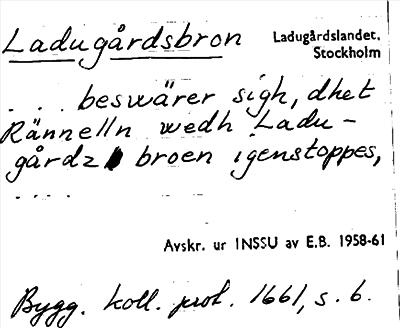 Ladugårdsbron
Ladugårdslandet,
Stockholm
. . . beswärer sigh, dhet
Rännelln wedh Ladu-
gårdz broen igenstoppes,
. . . .
Avskr. ur INSSU av E.B. 1958-61
Bygg. koll. prot. 1661, s. 6.